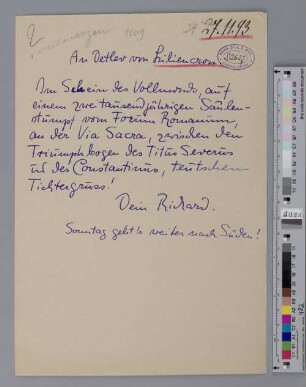 27.11.93
1109
An Detlev von Liliencron
Im Schein des Vollmonds, auf
einem zweitausendjährigen Säulen-
stumpf vom Forum Romanum,
an der Via Sacra, zwischen den
Triumphbogen des Titus Severus
und des Constantinus, teutschen
Tichtergruss!
Dein Richard.
Sonntag geht's weiter nach Süden!